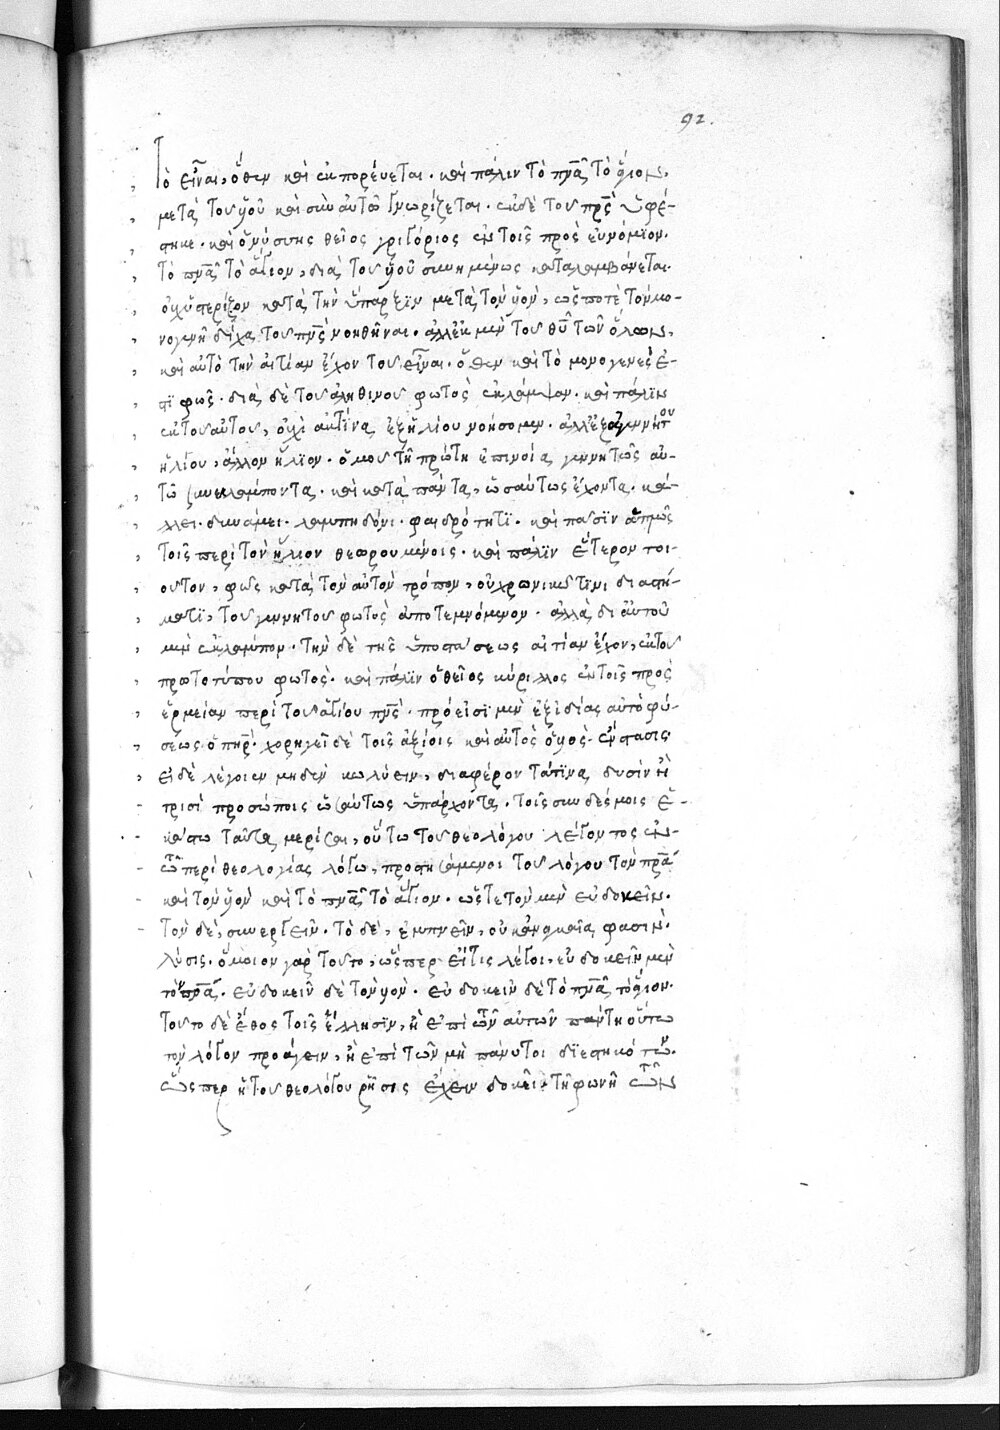 92.
τὸ εἶναι, ὅθεν καὶ ἐκπορεύεται· καὶ πάλιν τὸ πνᾶ τὸ ἅγιον,
μετὰ τοῦ υἱοῦ καὶ σὺν αὐτῶ γνωρίζεται· ἐκ δὲ τοῦ πρς ὑφέ-
στηκε· καὶ ὁ νύσσης θεῖος γριγόριος ἐν τοῖς πρὸς εὐνόμϊον·
τὸ πνᾶ τὸ ἅγιον, διὰ τοῦ υἱοῦ συνημένως καταλαμβάνεται·
οὐχ ὑστερίζον κατὰ τὴν ὕπαρξϊν μετὰ τὸν υἱὸν, ὥς ποτὲ τὸν μο-
νογενῆ δίχα τοῦ πνς νοηθῆναι· ἀλλ' ἐκ μὲν τοῦ θῦ τῶν ὅλων,
καὶ αὐτὸ τὴν αἰτίαν ἔχον τοῦ εἶναι· ὅθεν καὶ τὸ μονογενές ἐ-
στϊ φῶς· διὰ δὲ τοῦ ἀληθινοῦ φωτὸς ἐκλάμψαν· καὶ πάλϊν
ἐκ τοῦ αὐτοῦ, οὐχὶ ἀκτῖνα ἐξ ἡλίου νοήσομεν· ἀλλ' ἐξ ἀγεννήτου
ἡλίου, ἄλλον ἥλϊον· ὁμοῦ τῆ πρώτη ἐπινοία γεννητῶς αὐ-
τῶ συνεκλάμποντα· καὶ κατὰ πάντα, ὡσαύτως ἔχοντα· κάλ-
λει· δυνάμει· λαμπηδόνι· φαιδρότητϊ· καὶ πασϊν ἁπλῶς
τοῖς περὶ τὸν ἥλιον θεωρουμένοις· καὶ πάλϊν ἕτερον τοι-
οῦτον, φῶς κατὰ τὸν αὐτὸν τρόπον, οὐ χρωνικῶ τϊνι διαστή-
ματϊ, τοῦ γεννητοῦ φωτὸς ἀποτεμνόμενον· ἀλλὰ δι αὐτοῦ
μὲν ἐκλάμπον· τὴν δὲ τῆς ὑποστάσεως αἰτίαν ἔχον, ἐκ τοῦ
πρωτοτύπου φωτὸς· καὶ πάλϊν ὁ θεῖος κύριλλος ἐν τοῖς πρὸς
ἑρμείαν περὶ τοῦ ἁγίου πνς· πρόεισϊ μὲν ἐξ ἰδίας αὐτὸ φύ-
σεως ὁ πηρ· χορηγεῖ δὲ τοῖς ἀξίοις καὶ αὐτὸς ὁ υἱὸς· ἔνστασις·
εἰ δὲ λέγοιεν μηδὲν κωλύειν, διαφέρον τά τϊνα δυσὶν ἢ
τρισὶ προσώποις ὡσαύτως ὑπάρχοντα· τοῖς συνδέσμοις ἑ-
κάστω ταῦτα μερίζαι, οὕτω τοῦ θεολόγου λέγοντος ἐν
τῶ περὶ θεολογίας λόγω, προστησάμενοι τοῦ λόγου τὸν πρᾶ
καὶ τὸν υἱὸν καὶ τὸ πνᾶ τὸ ἅγιον· ὥς τε τὸν μὲν εὐδοκεῖν·
τὸν δὲ, συνεργεῖν· τὸ δὲ, ἐμπνεῖν, οὐκ ἀναγκαῖα φασὶν·
λύσις· ὅμοιον γὰρ τοῦτο, ὥσπερ εἴ τις λέγοι, εὐδοκεῖν μὲν
τὸν πρᾶ· εὐδοκεῖν δὲ τὸν υἱὸν· εὐδοκεῖν δὲ τὸ πνᾶ τὸ ἅγιον·
τοῦτο δὲ ἔθος τοῖς ἕλλησϊν, ἢ ἐπὶ τῶν αὐτῶν πάντη οὕτω
τὸν λόγον προάγειν, ἢ ἐπὶ τῶν μὴ πάνυ τοι διεστηκότων·
ὥσπερ ἡ τοῦ θεολόγου ῥῆσις ἔχειν δοκεῖ· τῆ φωνῆ τῶν